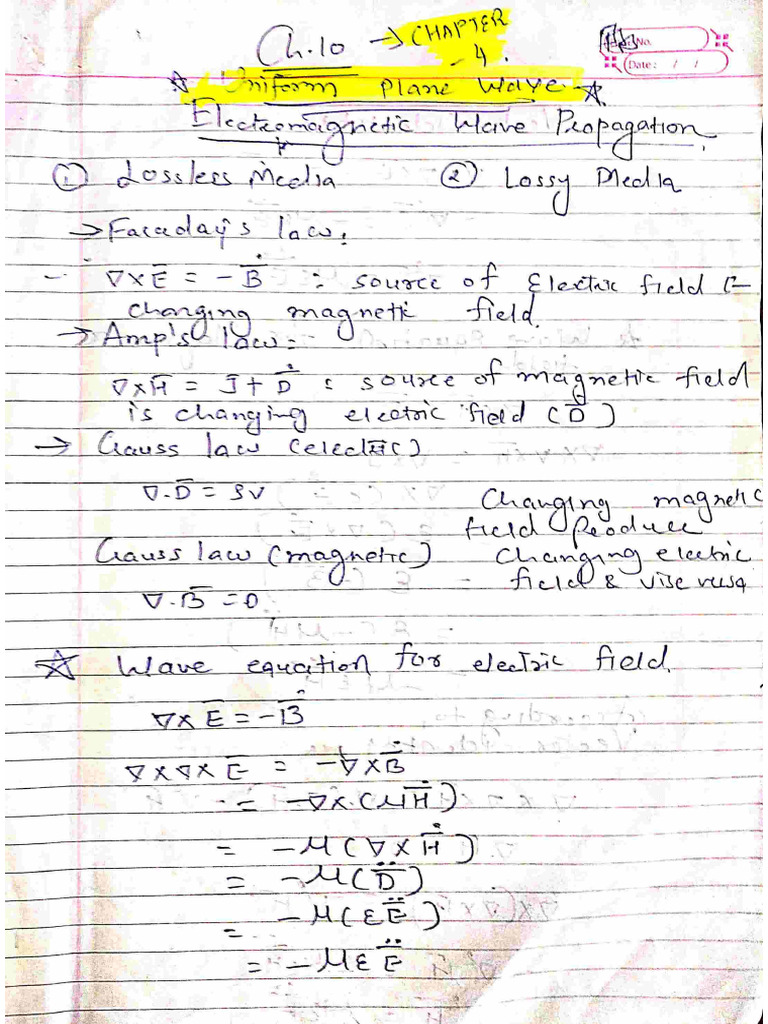 Ch.10 → CHAPTER
- 4.
No.
Date: / /
☆ Uniform plane wave ☆
Electromagnetic Wave Propagation.
① Lossless Media ② Lossy Media
→ Faraday's law:
∇×E̅ = -Ḃ̅ : source of Electric field is
changing magnetic field.
→ Amp's law:
∇×H̅ = J̅ + Ḋ̅ : source of magnetic field
is changing electric field (D̅)
→ Gauss law (electric)
∇.D̅ = ρv
Changing magnetic
field Produce
Gauss law (magnetic) changing electric
field & vise versa
∇.B̅ = 0
☆ Wave equation for electric field.
∇×E̅ = -Ḃ̅
∇×∇×E̅ = -∇×Ḃ̅
= -∇×(μḢ̅)
= -μ(∇×Ḣ̅)
= -μ(D̈̅)
= -μ(εË̅)
= -μεË̅